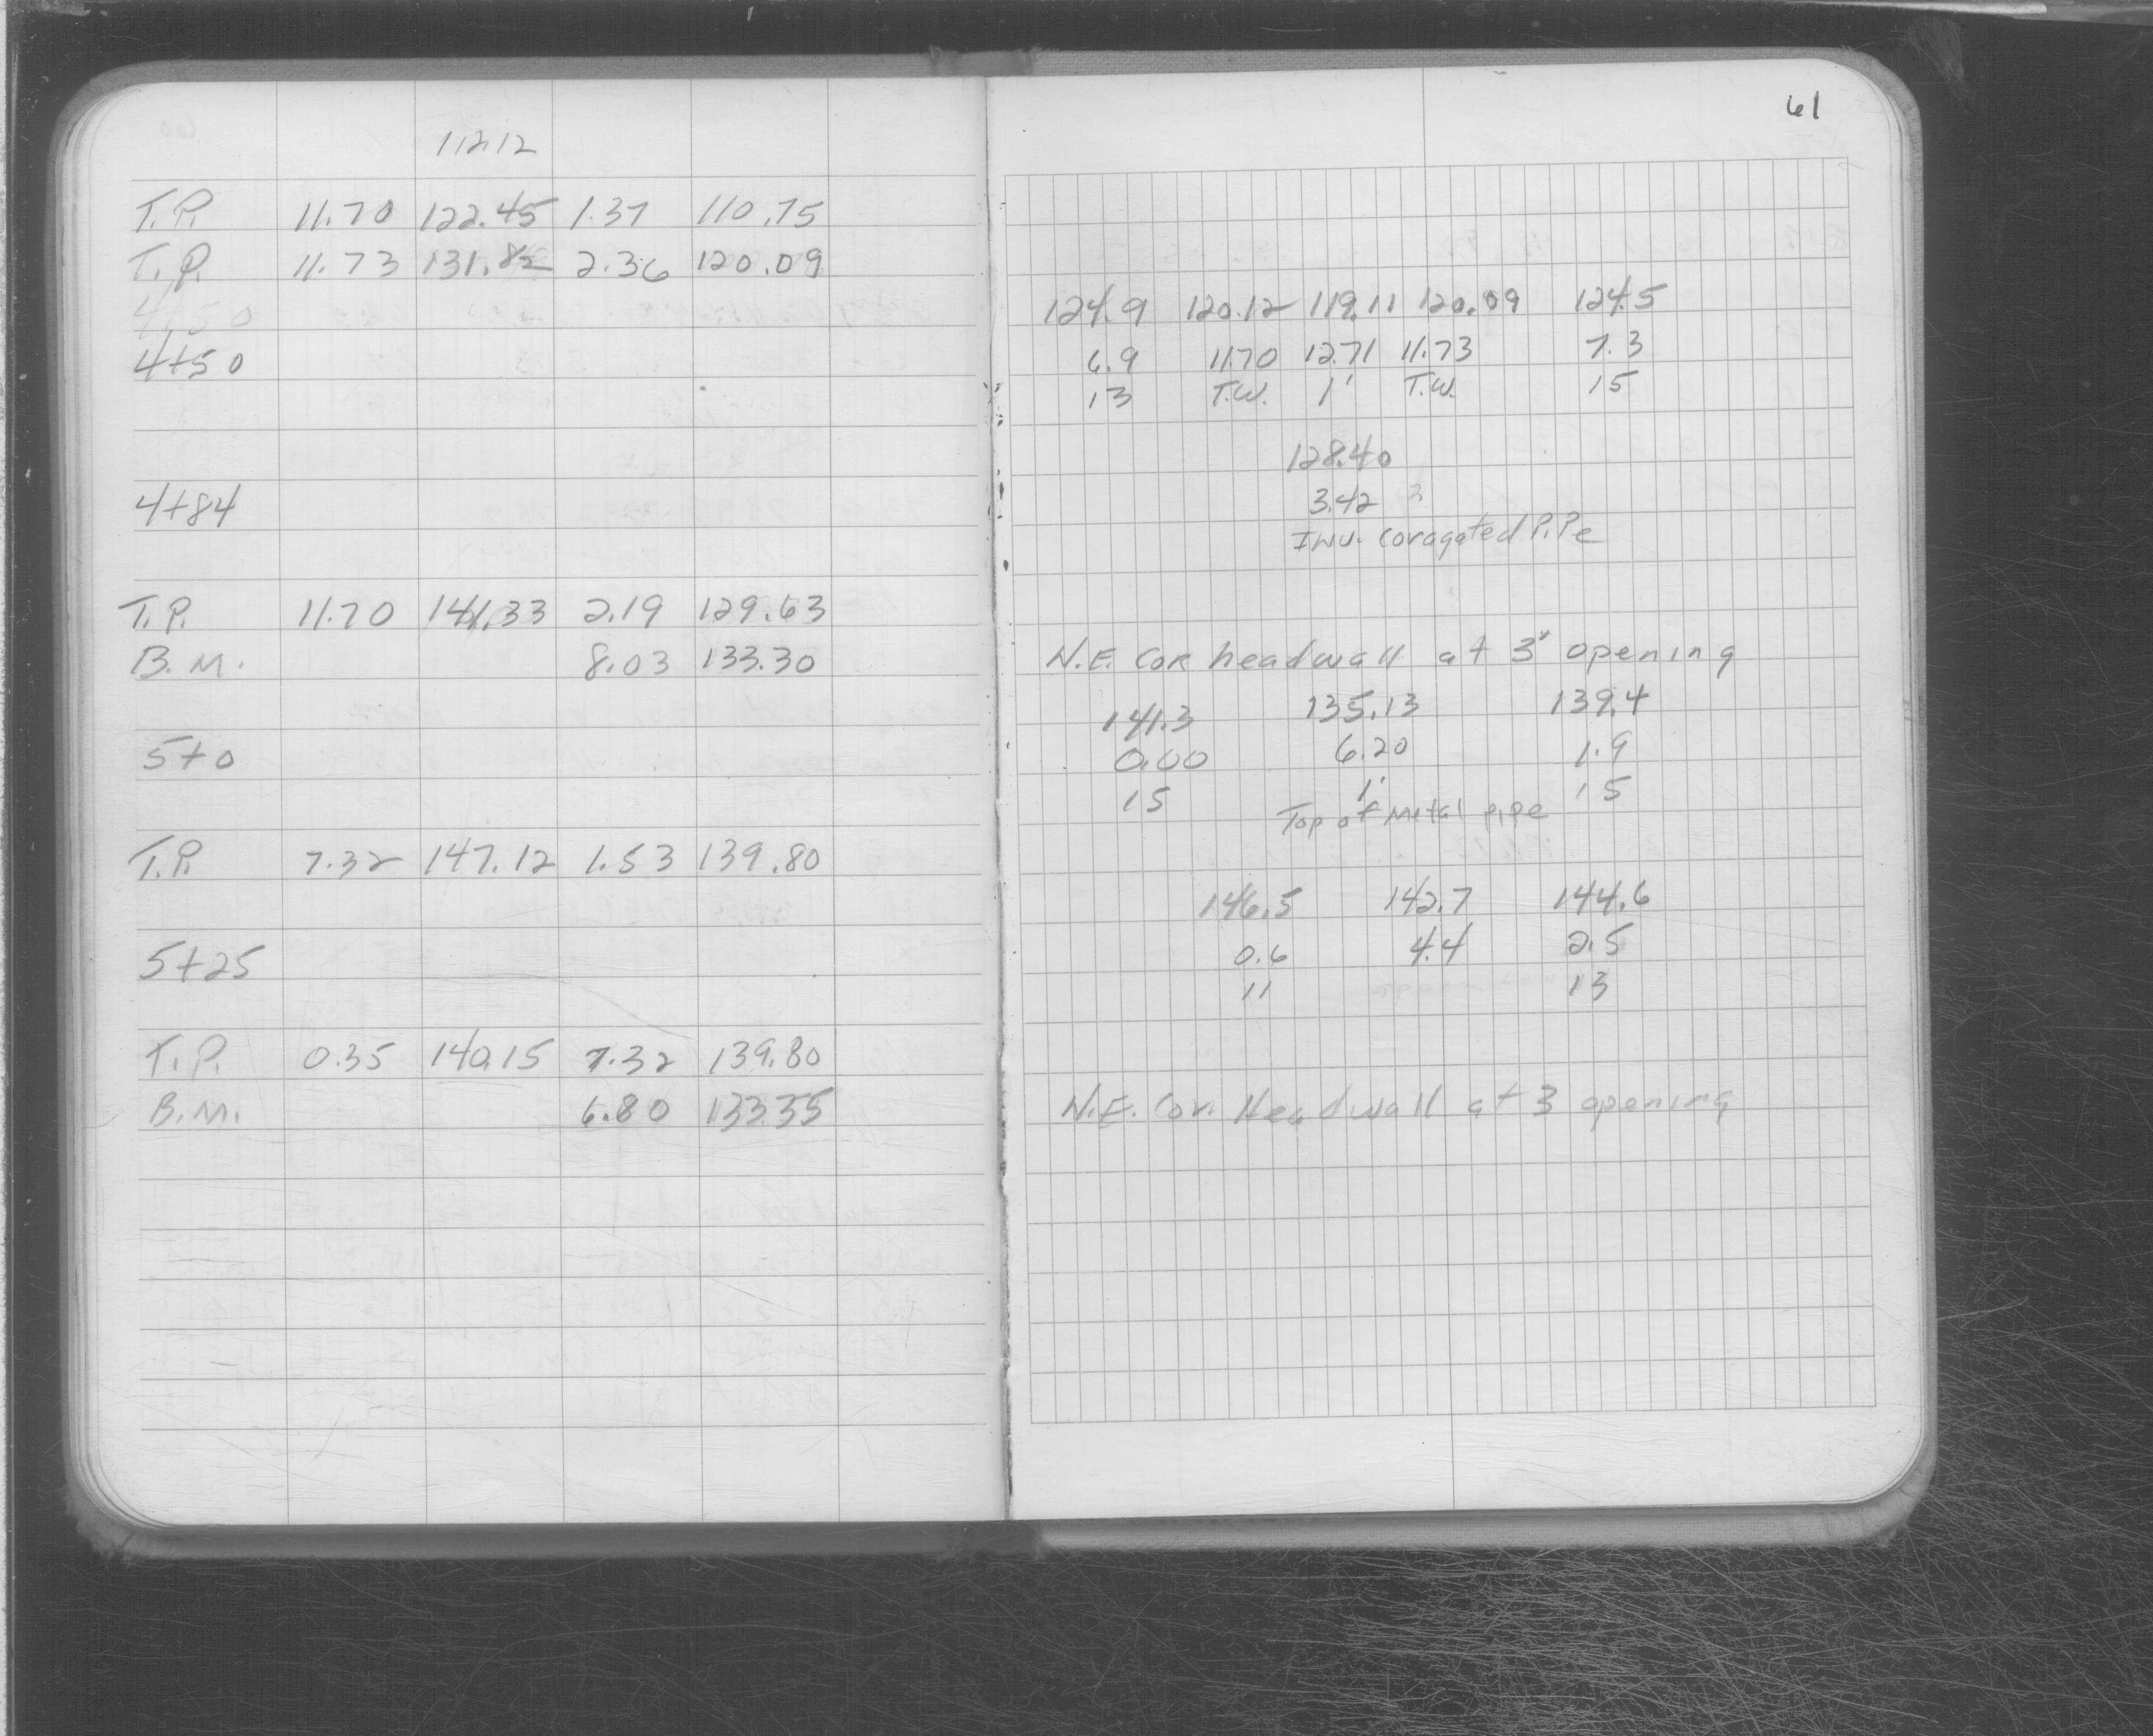 61
112.12
T.P. 11.70 122.45 1.37 110.75
T.P. 11.73 131.82 2.36 120.09
4+50
4+50
4+84
T.P. 11.70 141.33 2.19 129.63
B.M. 8.03 133.30
5+0
T.P. 7.32 147.12 1.53 139.80
5+25
T.P. 0.35 140.15 7.32 139.80
B.M. 6.80 133.35
124.9 120.12 119.11 120.09 124.5
6.9 11.70 12.71 11.73 7.3
13 T.W. 1' T.W. 15
128.40
3.42
Inv. Coragated Pipe
N.E. Cor headwall at 3' opening
141.3 135.13 139.4
0.00 6.20 1.9
15 1' 15
Top of Metal pipe
146.5 142.7 144.6
0.6 4.4 2.5
11 13
N.E. Cor. Headwall at 3 opening